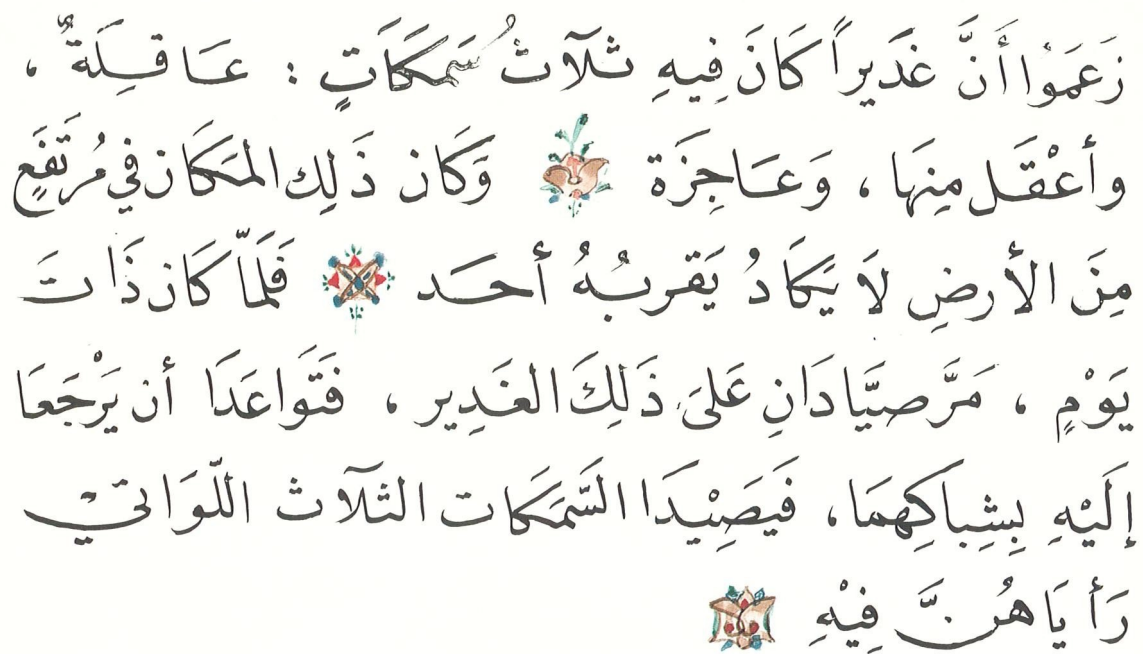 زَعَمَوْا أَنَّ غَدَيراً كَانَ فِيهِ ثَلَآثُ سَمَكَاتٍ : عَاقِلَةٌ ،
وأعْقَل مِنهَا ، وَعَاجِزَة وَكَان ذَلِك المَكَان في مُرتَفَعٍ
مِنَ الأرضِ لَا يَكَادُ يَقربُهُ أحَد فَلَمّا كَان ذَاتَ
يَوْمٍ ، مَرَّ صيَّادَانِ عَلىَ ذَلِكَ الغَدِير ، فَتَواعَدَا أن يَرْجَعَا
إلَيْهِ بِشِباكِهمَا ، فَيَصِيْدَا السَّمَكَات الثلآث اللّوَاتيْ
رَأيَاهُنَّ فِيْهِ